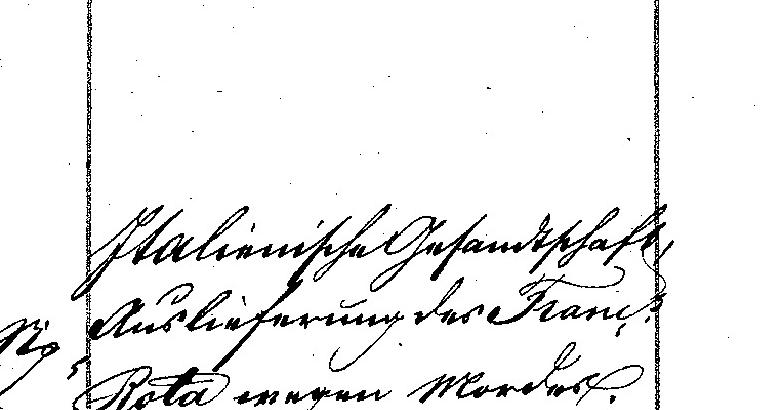 Italienische Gesandtschaft,
Auslieferung des Franc.
Rota wegen Mordes.